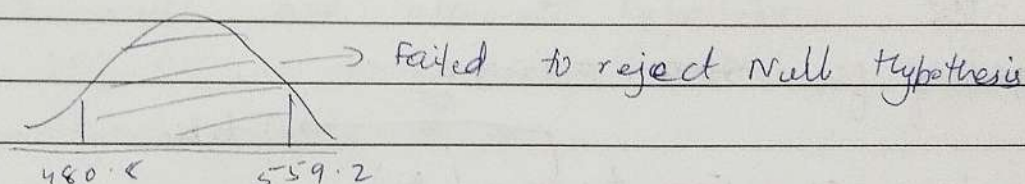 → Failed to reject Null Hypothesis
480.8 559.2